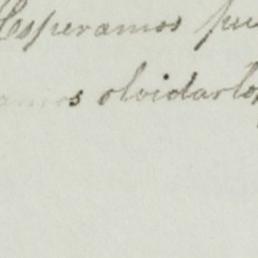 Esperamos pu
amos olvidarlo,